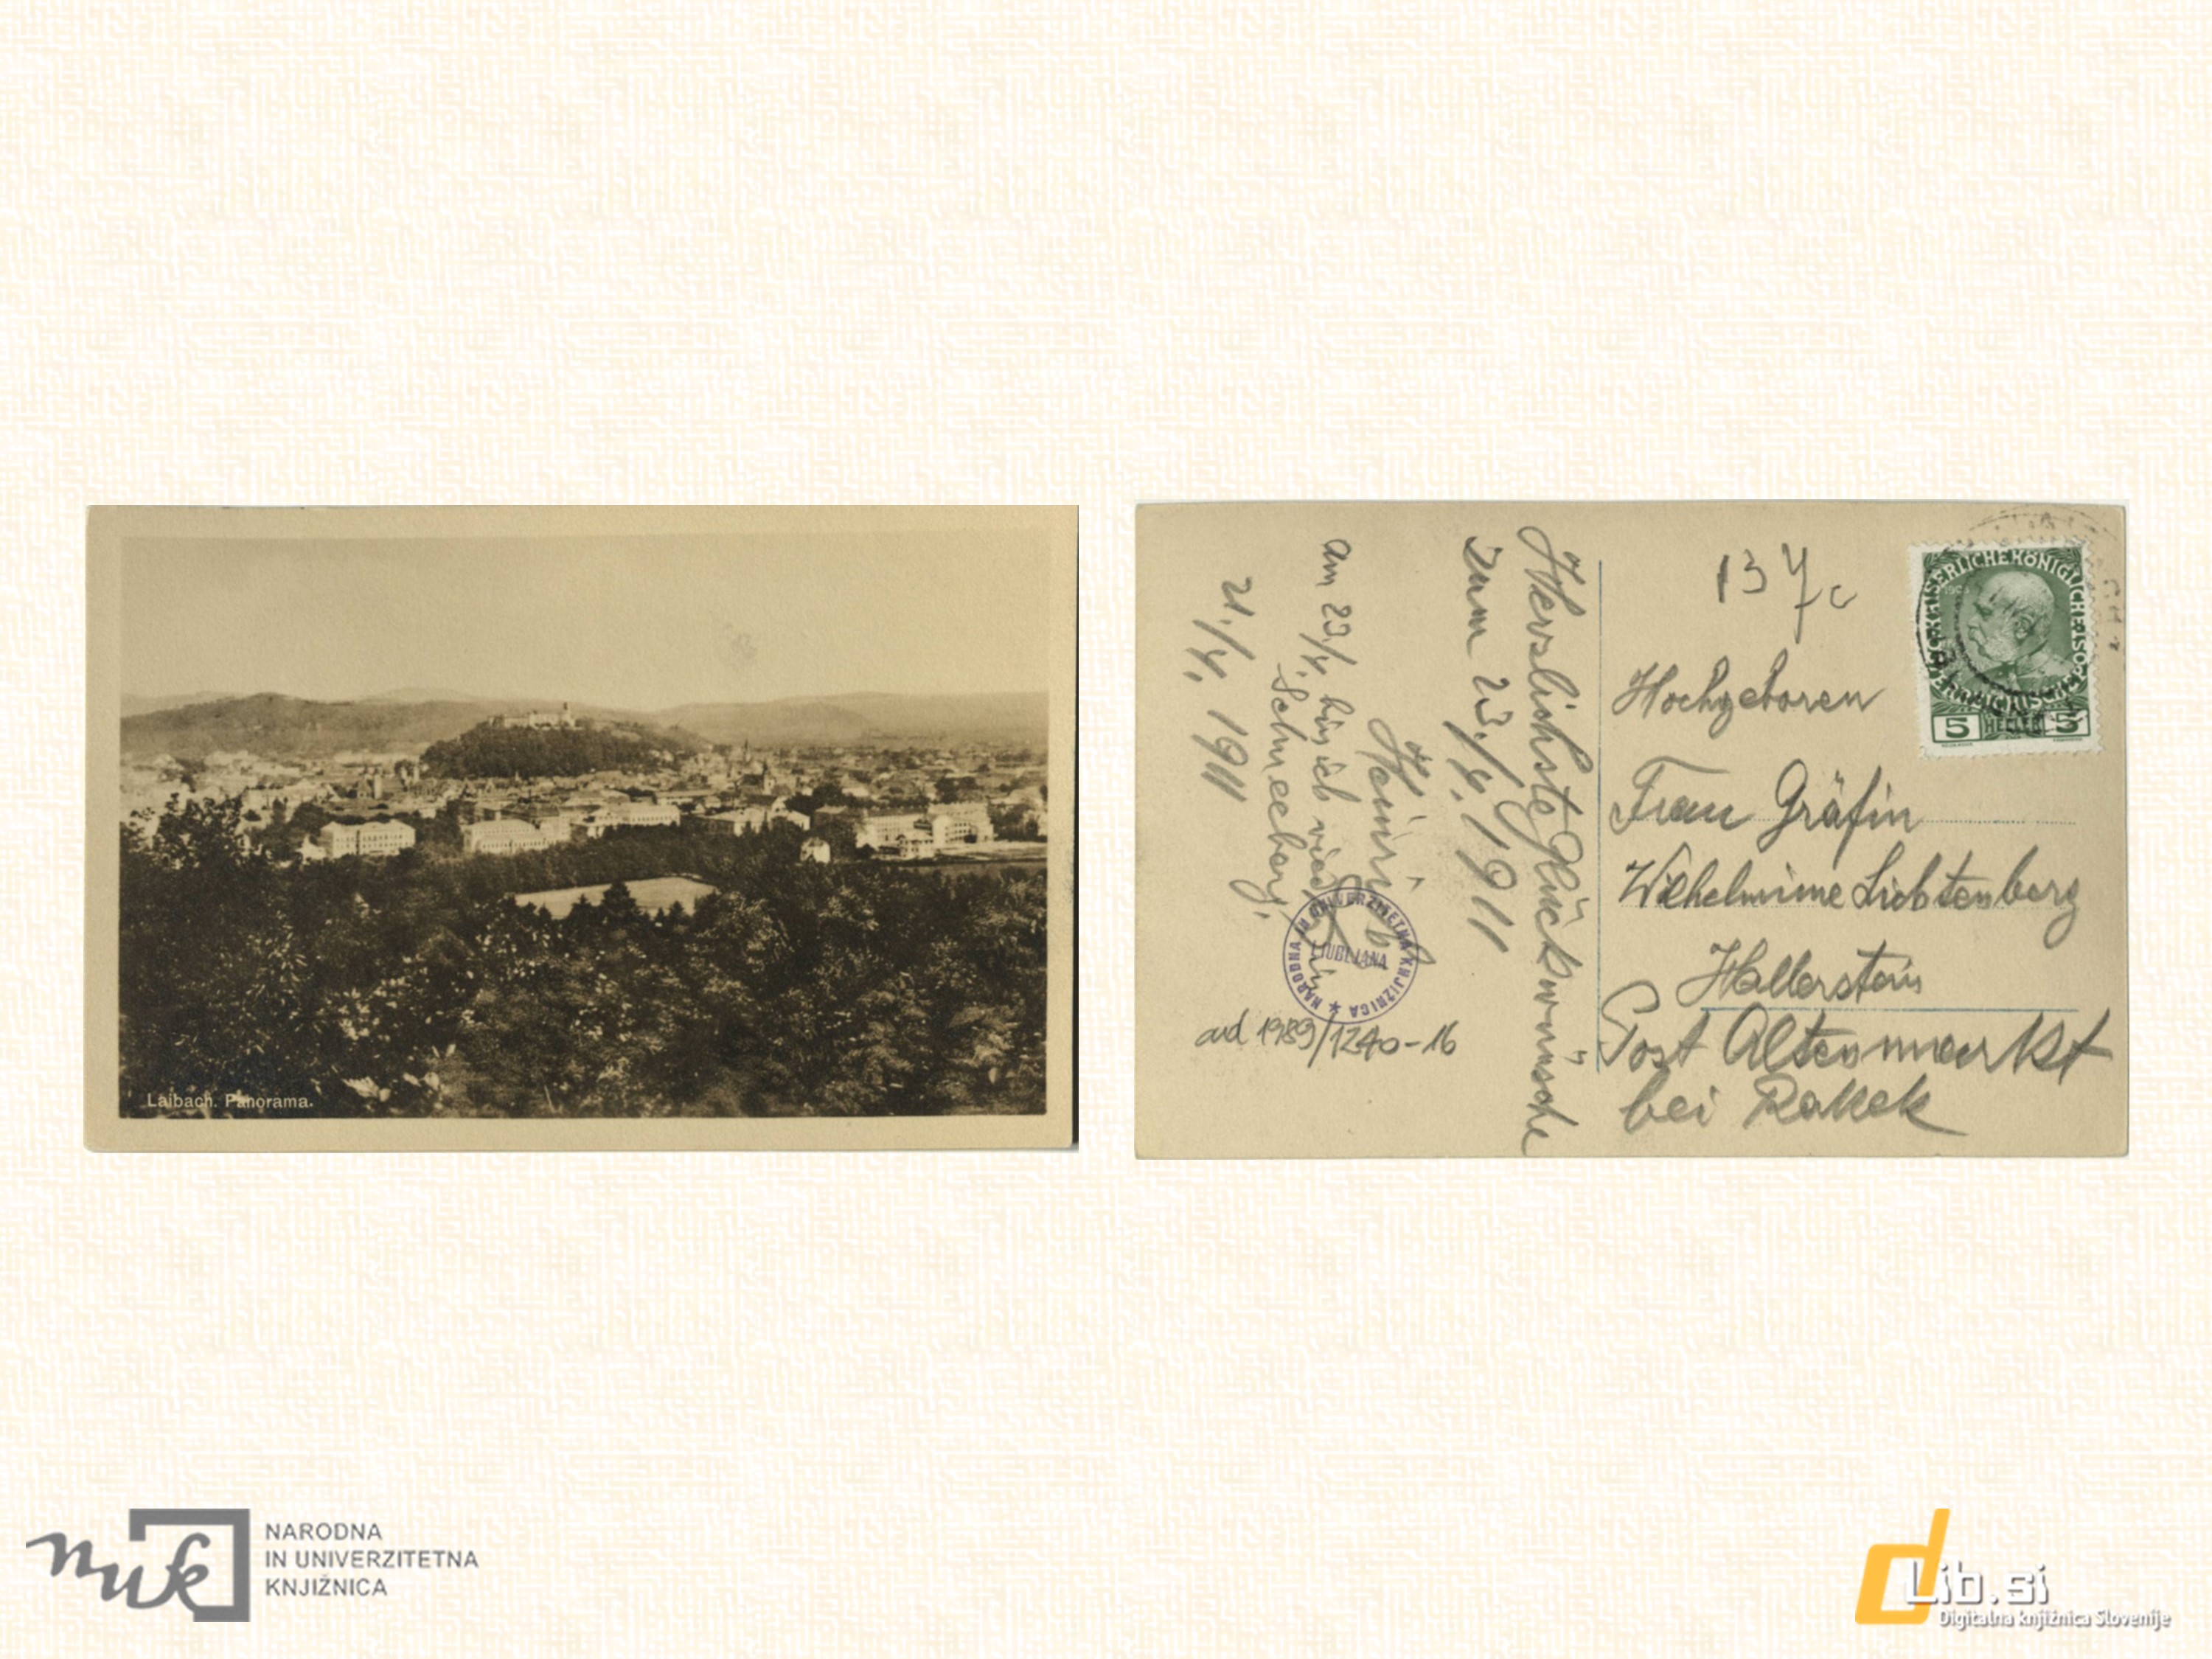 Laibach. Panorama.
Herzlichste Glückwünsche
zum 23./4. 1911
Heinrich
am 23./4. bin ich wieder in
Schneeberg.
21./4. 1911
NARODNA IN UNIVERZITETNA KNJIŽNICA ★
LJUBLJANA
ad 1989/1240-16
Hochgeboren
Frau Gräfin
Wilhelmine Lichtenberg
Hallerstein
Post Altenmarkt
bei Rakek
5 HELLER 5
nuk
NARODNA
IN UNIVERZITETNA
KNJIŽNICA
dLib.si
Digitalna knjižnica Slovenije